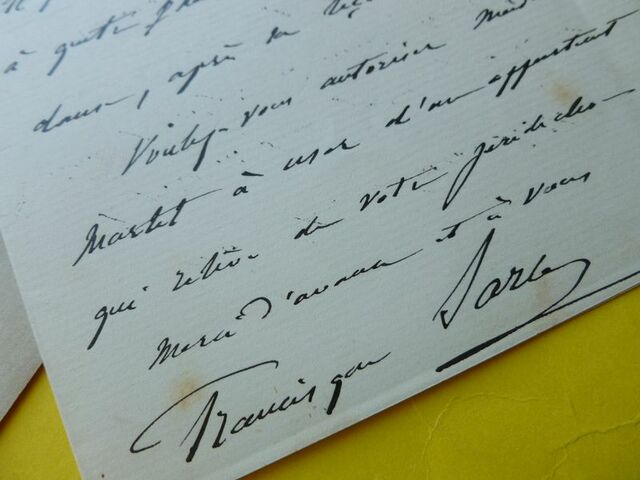 à quatre
dans, après la
Voulez-vous autoriser
Martel à user d'un appartement
qui relève de votre juridiction
Merci d'avance et à vous
Francisque Sarcey